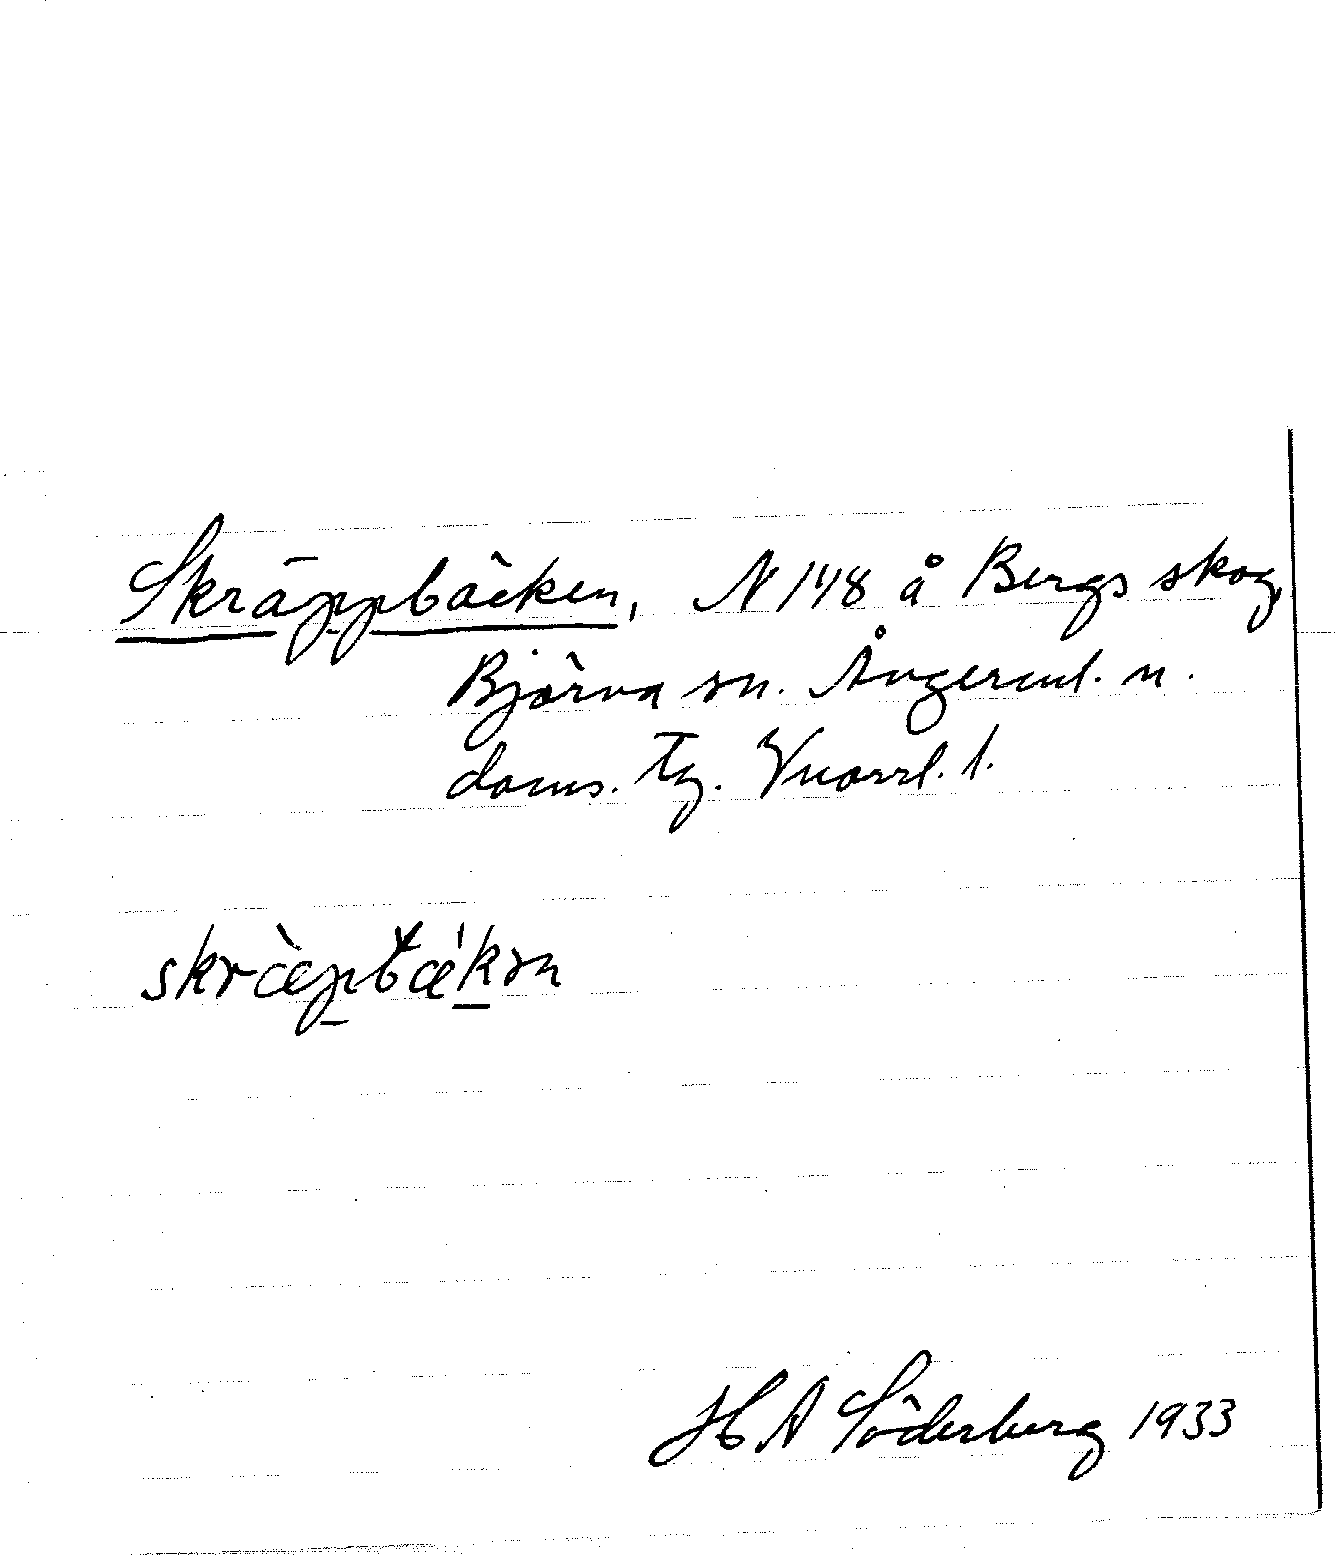 Skräppbäcken, N 148 å Bergs skog,
Björna sn. Ångerml. n.
doms. Tg. Vnorrl. l.
skræ̀pbækən
H A Söderberg 1933